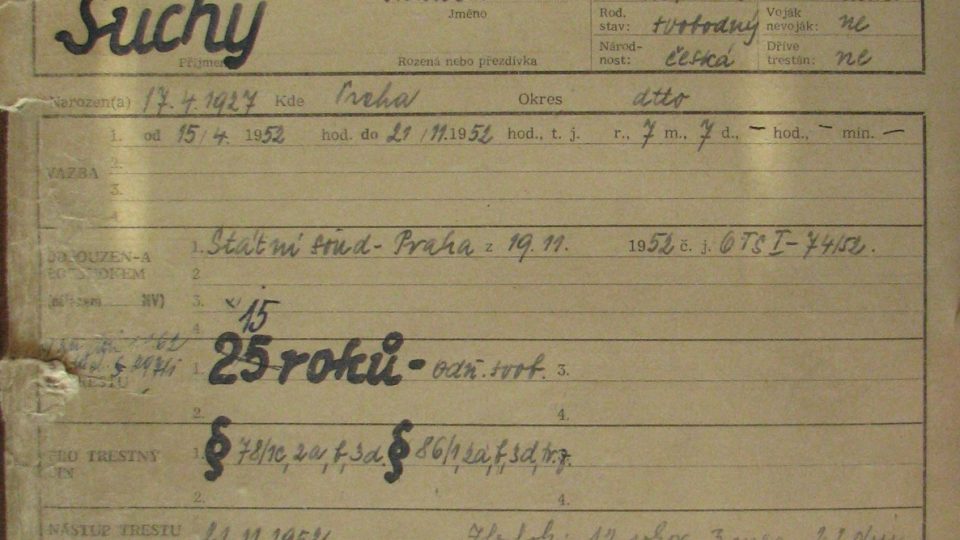 Suchý
Jméno
Příjmení
Rozená nebo přezdívka
Rod. stav: svobodný
Voják nevoják: ne
Národnost: česká
Dříve trestán: ne
Narozen(a) 17. 4. 1927 Kde Praha Okres dtto
VAZBA
1. od 15/4. 1952 hod. do 21/11. 1952 hod., t. j. r., 7 m., 7 d., — hod., — min. —
2.
3.
4.
1. Státní soud - Praha z 19. 11. 1952 č. j. OTS I - 74/52.
2
3.
4.
15
1. 25 roků - odn. svob. 3.
2. 4.
TRESTNÝ
1. § 78/1c, 2a, f, 3d. § 86/1, 2a, f, 3d, tr. z.
2. 4.
NÁSTUP TRESTU